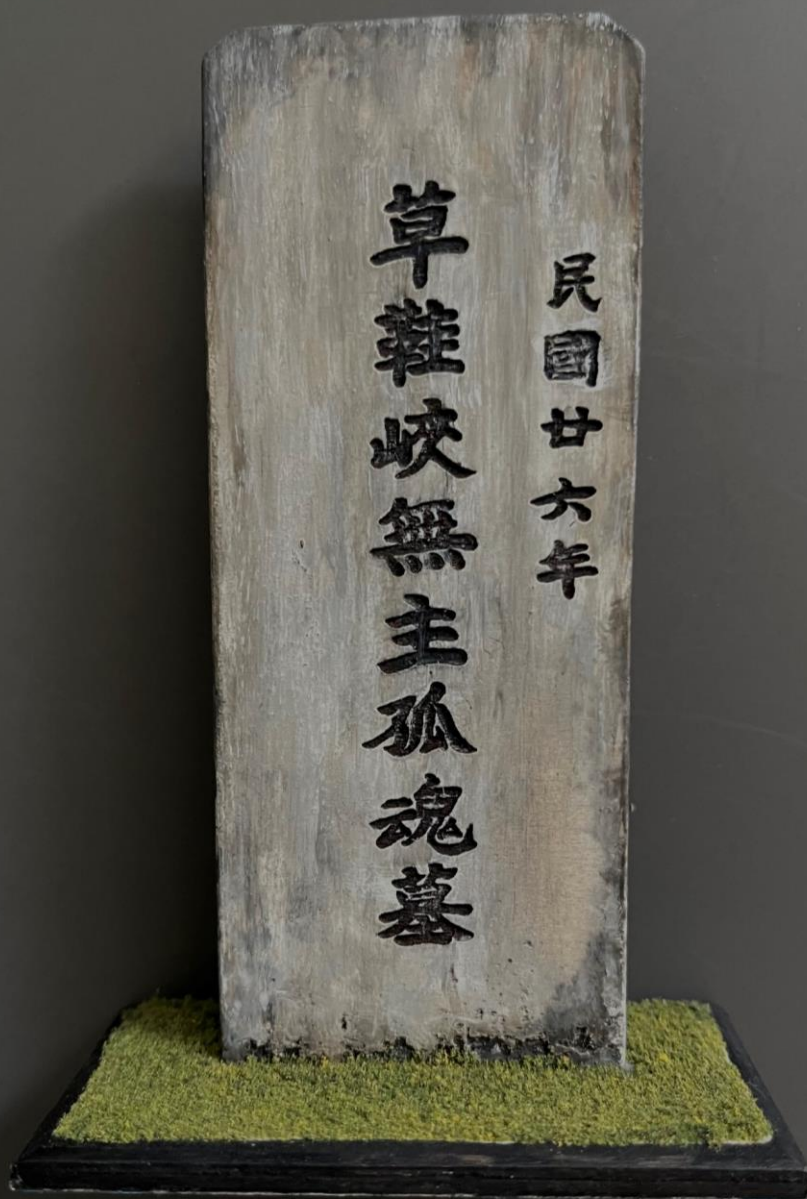 民國廿六年
草鞋峽無主孤魂墓